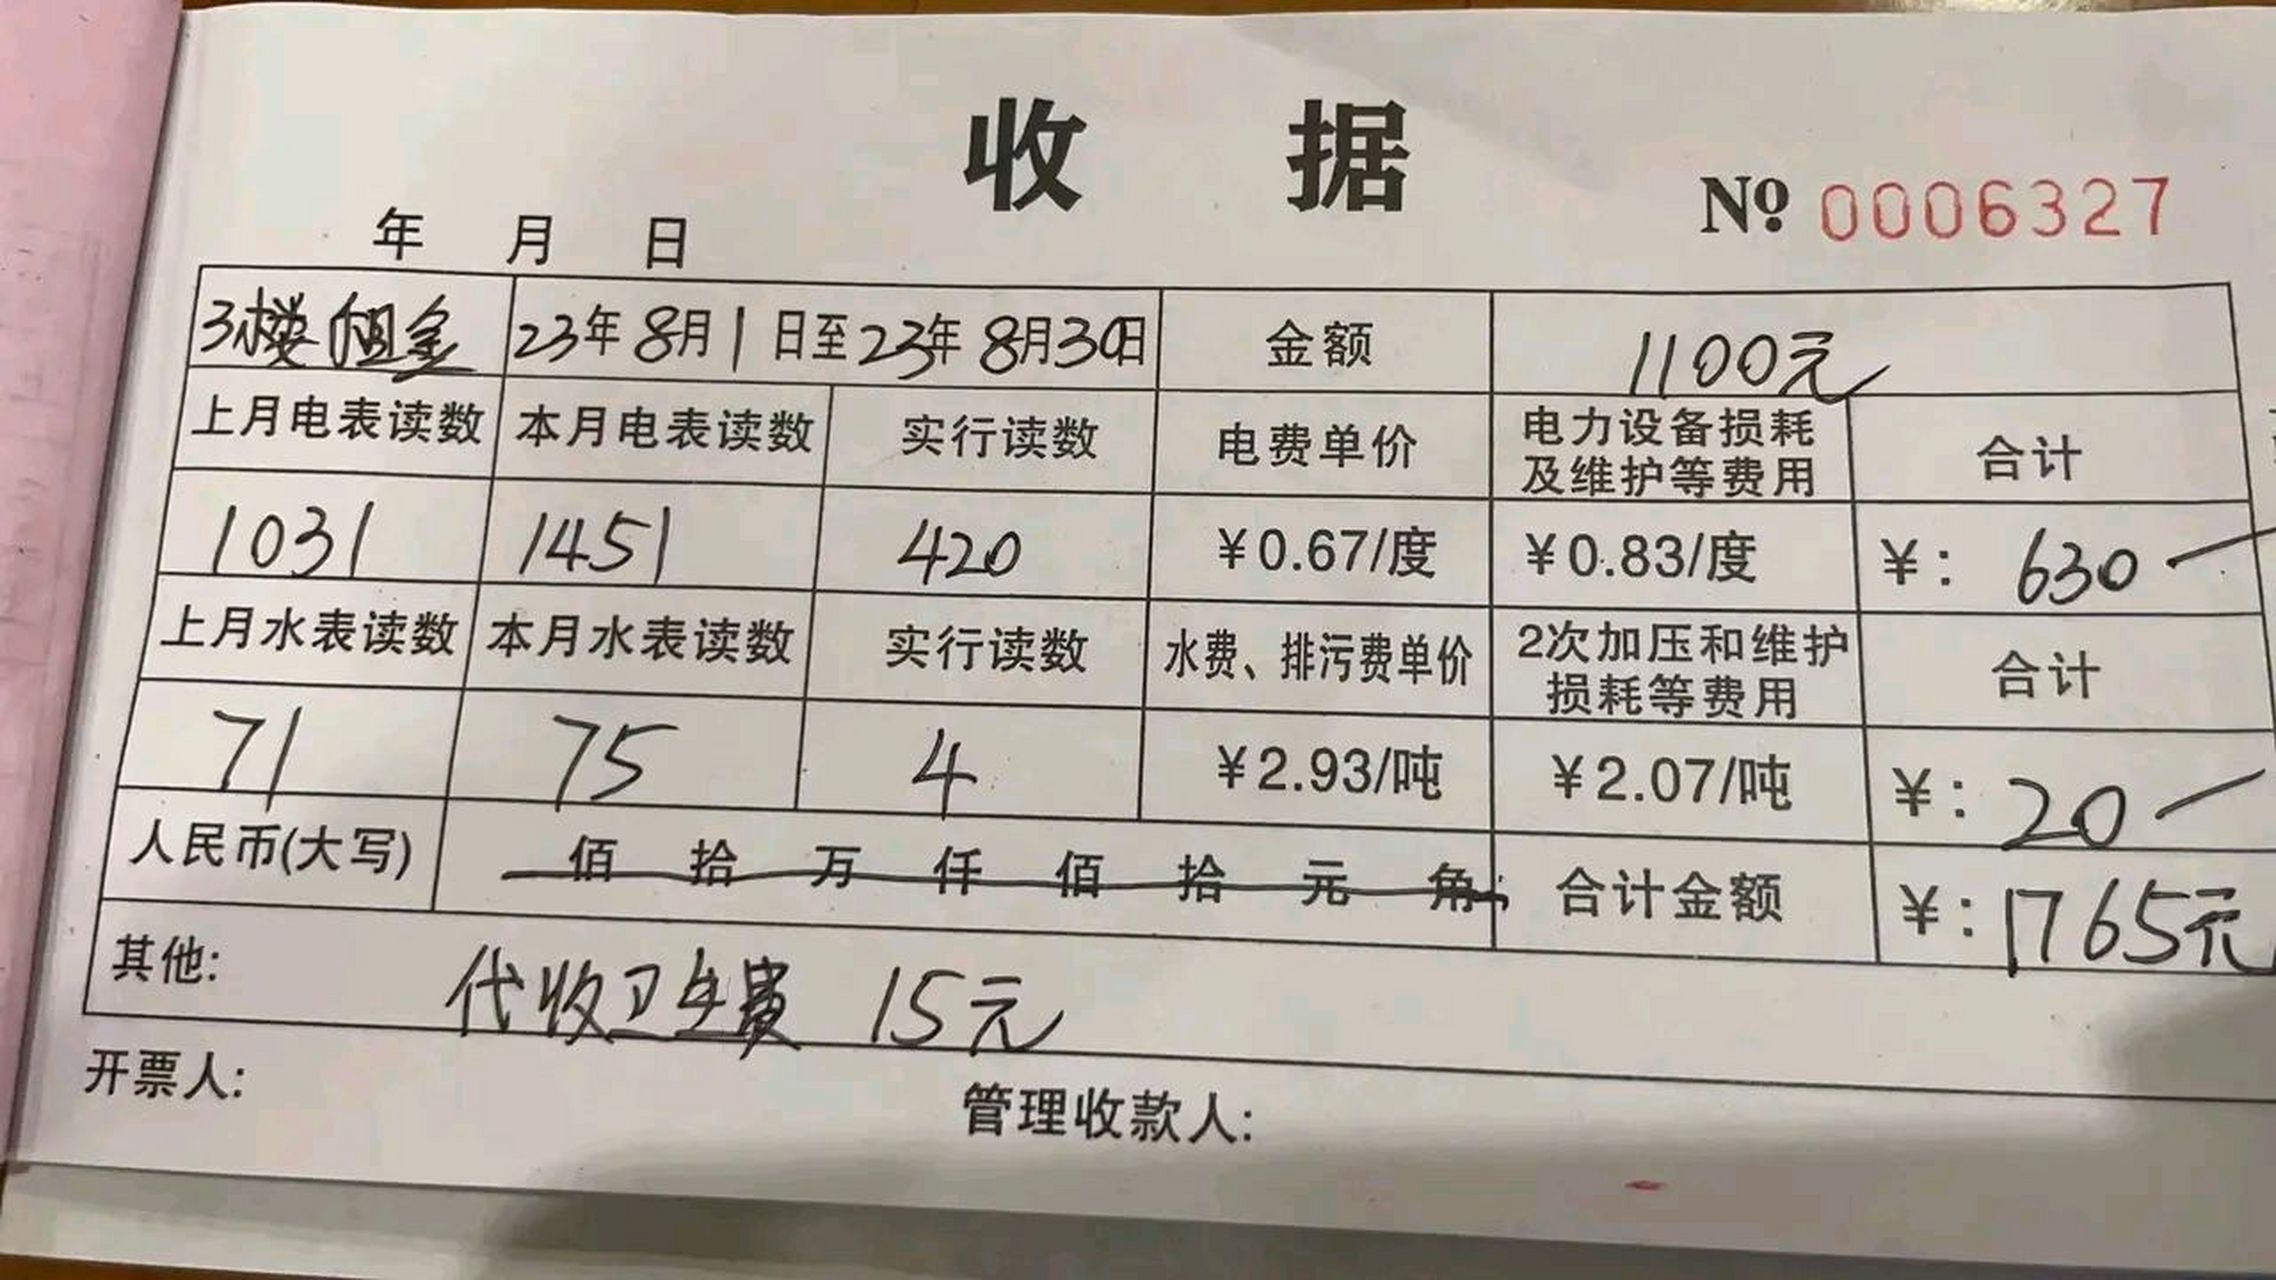 收 据
№ 0006327
年 月 日
3楼租金 23年8月1日至23年8月30日 金额 1100元
上月电表读数 本月电表读数 实行读数 电费单价 电力设备损耗及维护等费用 合计
1031 1451 420 ¥0.67/度 ¥0.83/度 ¥: 630
上月水表读数 本月水表读数 实行读数 水费、排污费单价 2次加压和维护损耗等费用 合计
71 75 4 ¥2.93/吨 ¥2.07/吨 ¥: 20
人民币(大写) 佰 拾 万 仟 佰 拾 元 角 合计金额 ¥: 1765元
其他: 代收卫生费 15元
开票人: 管理收款人: